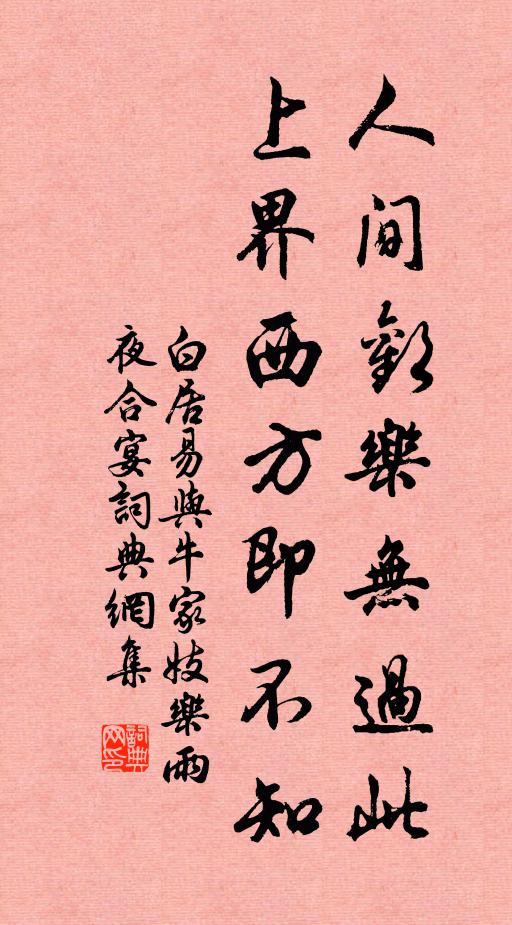 人間歡樂無過此
上界西方即不知
白居易與牛家妓樂雨
夜合宴詞典網集
詞典
网印